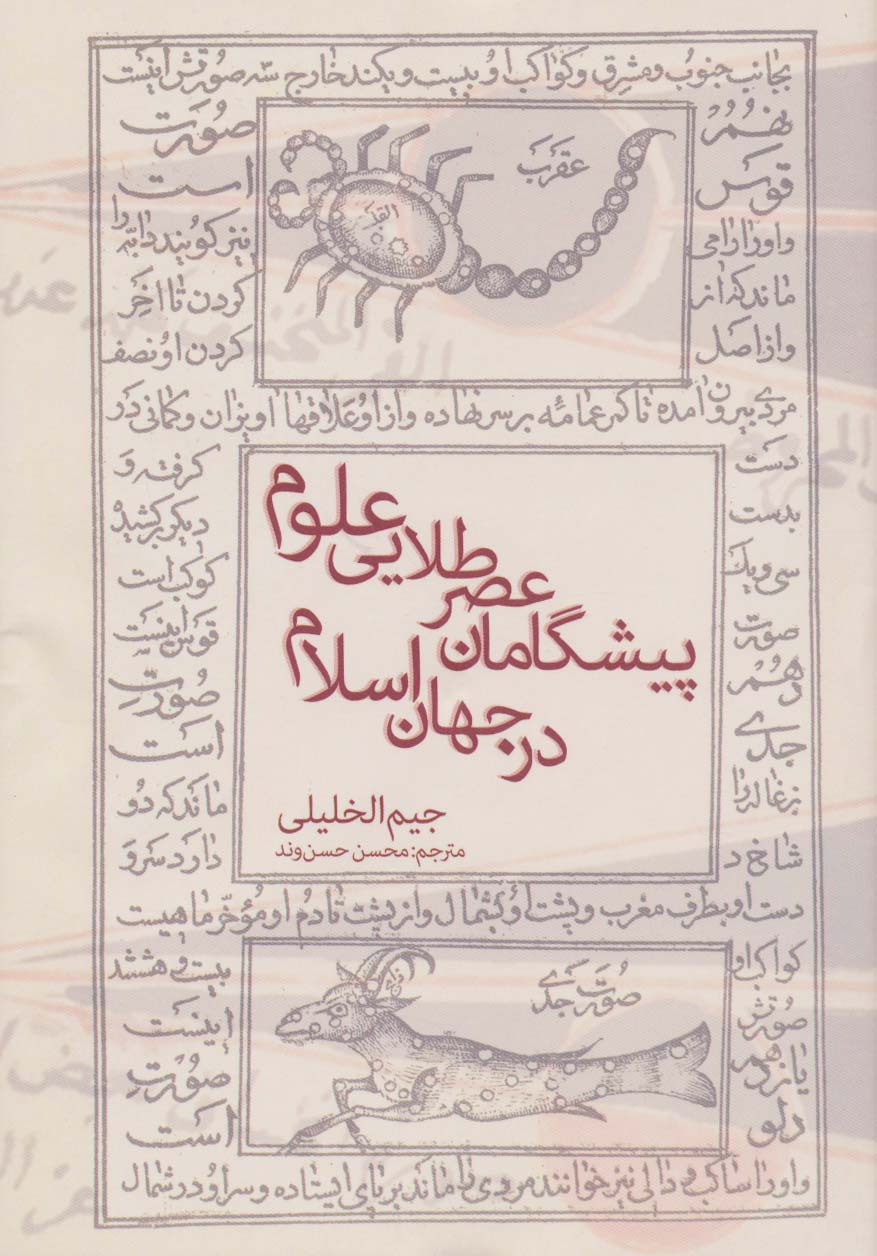 بجانب جنوب و مشرق و کواکب او بیست و یکند خارج سه صورتش اینست
نهم صورت
قوس است
عقرب
القلب
و او را رامی نیز کویند دابه را
ماند که از کردن تا اخر
و از اصل کردن او نصف
مردی بیرون امده تا کمر عمامه بر سر نهاده و از او علاقها اویزان و کمانی در
دست کرفته و
بدست دیکر کشیده
سی و یک کوکب است
صورت قوس اینست
دهم صورت
جدی است
بزغاله را ماند که دو
شاخ دارد سر و
علوم
طلایی
عصر
پیشگامان
در جهان اسلام
جیم الخلیلی
مترجم: محسن حسن‌وند
دست او بطرف مغرب و پشت او بشمال و از پشت تا دم او مؤخر ماهیست
کواکب او بیست و هشتند
صورتش اینست
یازدهم صورت
دلو است
صورت جدی
و او را ساکب و دالی نیز خوانند مردی را ماند بر پای ایستاده و سر او در شمال